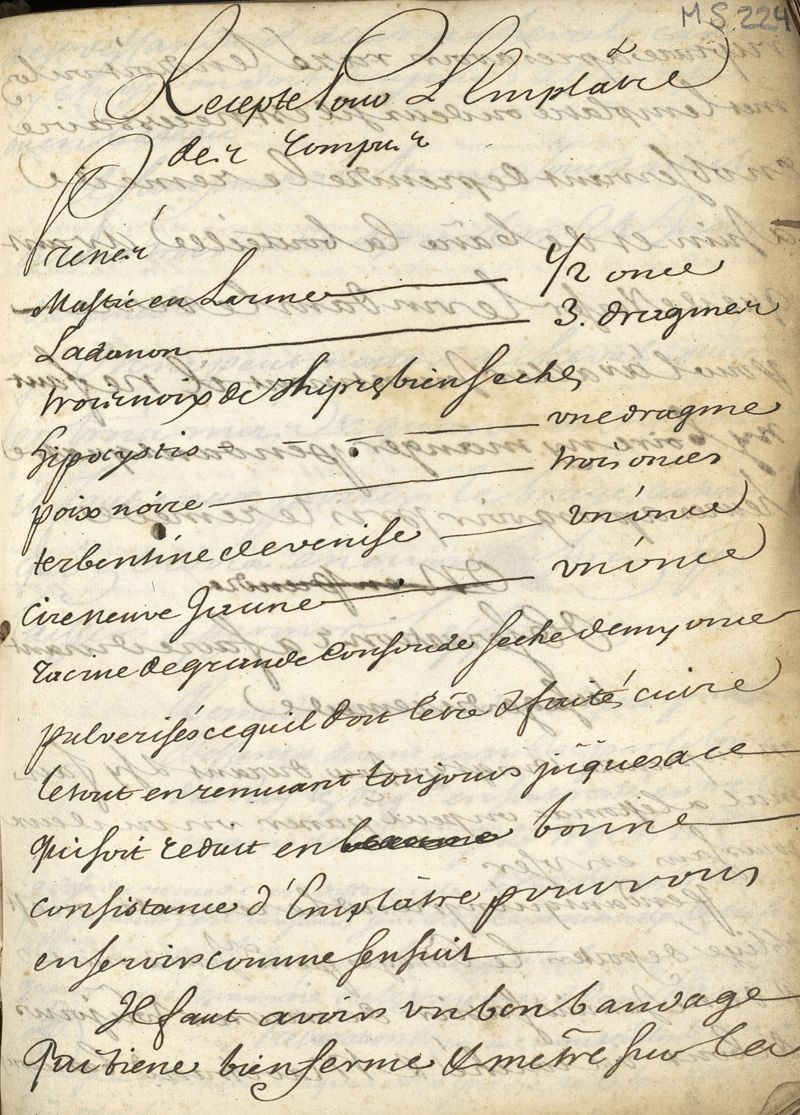 MS. 224
Recepte Pour L'Emplâtre
des rompus
Prenés
Mastic en Larme 1/2 once
Ladanon 3. dragmes
trois noix de chipres bien seches
hipocystis une dragme
poix noire trois onces
terbentine de venise un'once
Cire neuve Jaune un'once
racine de grande Consoude seche demy once
pulverisés ce quil doit l'être & faités cuire
le tout en remuant toujours jûques a ce
qui soit reduit en bonne
consistance d'Emplâtre pour vous
en servir comme sensuit
Il faut avoir un bon bandage
qui tiene bien ferme & metre sur la